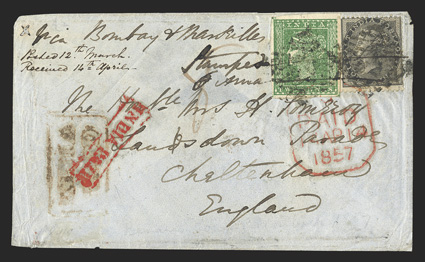 Via Bombay & Marseilles
Posted 12th March
Received 14th April
Stamped
6 Annas
The Honble Mrs H. Pomeroy
Lansdown Parade
Cheltenham
England
INDIA PAID
1857